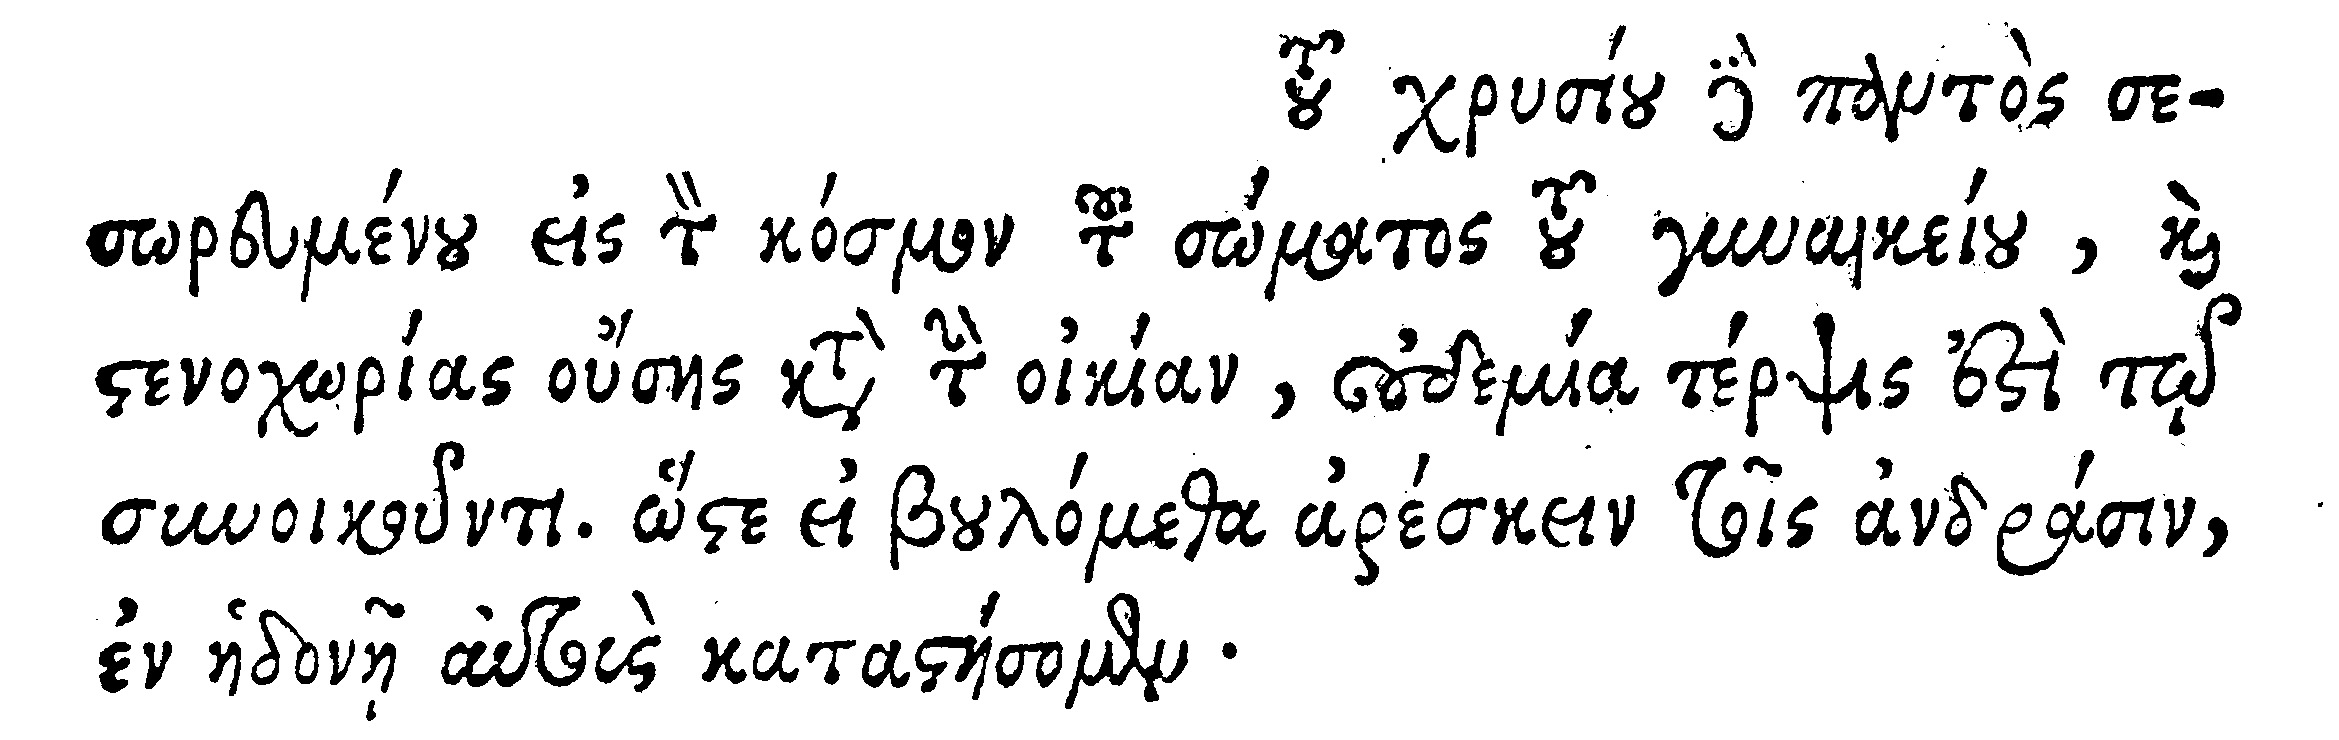 τοῦ χρυσίου γὰρ παντὸς σε-
σωρευμένου εἰς τὸν κόσμον τοῦ σώματος τοῦ γυναικείου, καὶ
στενοχωρίας οὔσης κατὰ τὴν οἰκίαν, οὐδεμία τέρψις ἐστὶ τῷ
συνοικοῦντι. ὥστε εἰ βουλόμεθα ἀρέσκειν τοῖς ἀνδράσιν,
ἐν ἡδονῇ αὐτοὺς καταστήσομεν.